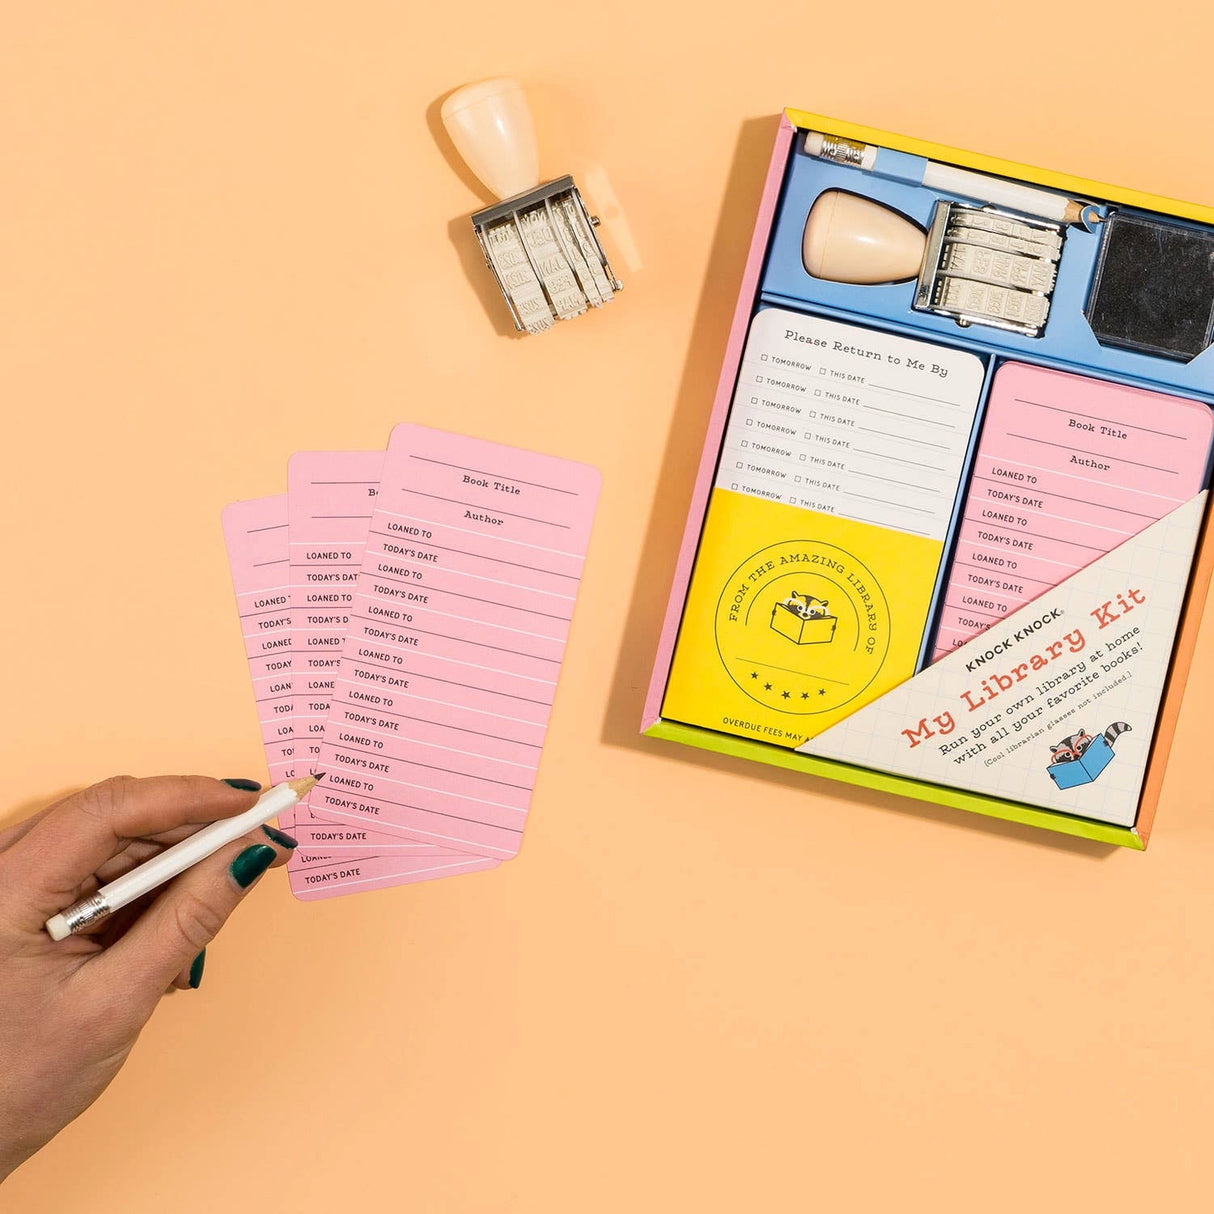 Book Title
Author
LOANED TO
TODAY'S DATE
LOANED TO
TODAY'S DATE
LOANED TO
TODAY'S DATE
LOANED TO
TODAY'S DATE
LOANED TO
TODAY'S DATE
LOANED TO
TODAY'S DATE
LOANED TO
TODAY'S DATE
B
LOANED TO
TODAY'S DAT
LOANED TO
TODAY'S DA
LOANED T
TODAY'S
LOANE
TODAY
LOAN
TOD
LOA
TO
TODAY'S DATE
LOANED
TODAY'S
LOANED
TODAY'S
LOANE
TODAY'
LOAN
TODA
LOAN
TODA
LOA
TOD
LO
TODAY'S DATE
Please Return to Me By
TOMORROW THIS DATE
TOMORROW THIS DATE
TOMORROW THIS DATE
TOMORROW THIS DATE
TOMORROW THIS DATE
TOMORROW THIS DATE
TOMORROW THIS DATE
FROM THE AMAZING LIBRARY OF
OVERDUE FEES MAY A
Book Title
Author
LOANED TO
TODAY'S DATE
LOANED TO
TODAY'S DATE
LOANED TO
TODAY'S DATE
LOANED TO
TODAY'S
LOANED
KNOCK KNOCK®
My Library Kit
Run your own library at home
with all your favorite books!
(Cool librarian glasses not included.)